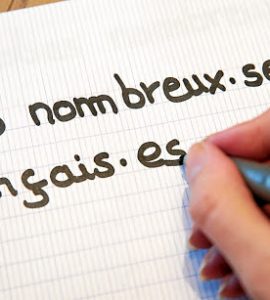 nombreux·se
nçais·es